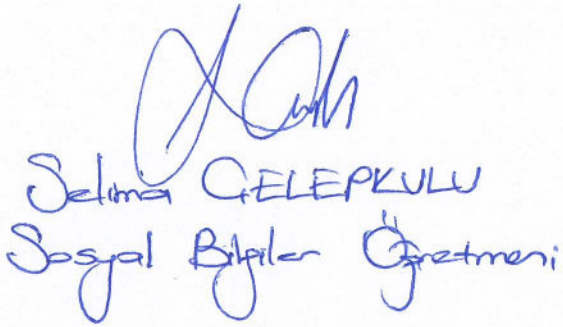 Selima GELEPKULU
Sosyal Bilgiler Öğretmeni